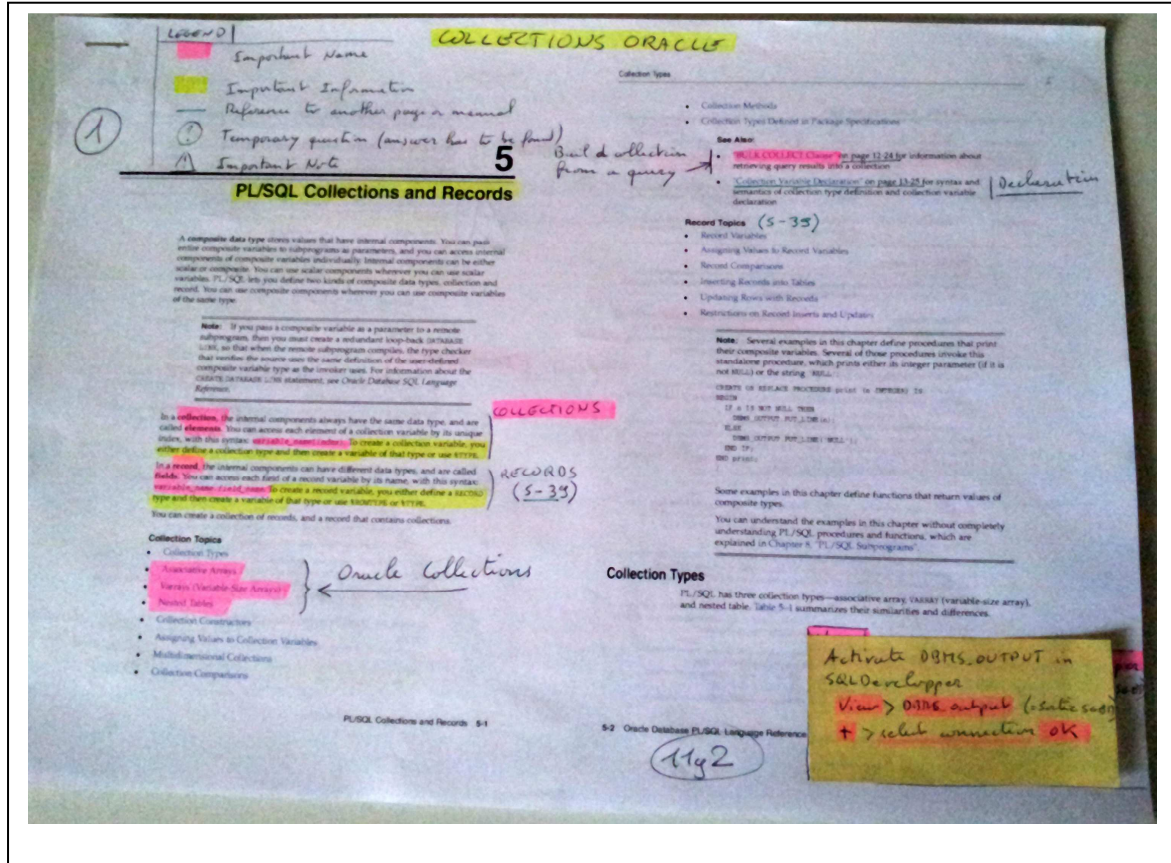 LEGEND
COLLECTIONS ORACLE
Important Name
Important Information
Reference to another page or manual
? Temporary question (answer has to be found)
! Important Note
1
5
PL/SQL Collections and Records
A composite data type stores values that have internal components. You can pass
entire composite variables to subprograms as parameters, and you can access internal
components of composite variables individually. Internal components can be either
scalar or composite. You can use scalar components wherever you can use scalar
variables. PL/SQL lets you define two kinds of composite data types, collection and
record. You can use composite components wherever you can use composite variables
of the same type.
Note: If you pass a composite variable as a parameter to a remote
subprogram, then you must create a redundant loop-back DATABASE
LINK, so that when the remote subprogram compiles, the type checker
that verifies the source uses the same definition of the user-defined
composite variable type as the invoker uses. For information about the
CREATE DATABASE LINK statement, see Oracle Database SQL Language
Reference.
In a collection, the internal components always have the same data type, and are
called elements. You can access each element of a collection variable by its unique
index, with this syntax: variable_name(index). To create a collection variable, you
either define a collection type and then create a variable of that type or use %TYPE.
COLLECTIONS
In a record, the internal components can have different data types, and are called
fields. You can access each field of a record variable by its name, with this syntax:
variable_name.field_name. To create a record variable, you either define a RECORD
type and then create a variable of that type or use %ROWTYPE or %TYPE.
RECORDS
(5-39)
You can create a collection of records, and a record that contains collections.
Collection Topics
• Collection Types
• Associative Arrays
• Varrays (Variable-Size Arrays)
• Nested Tables
Oracle Collections
• Collection Constructors
• Assigning Values to Collection Variables
• Multidimensional Collections
• Collection Comparisons
PL/SQL Collections and Records 5-1
Collection Types
• Collection Methods
• Collection Types Defined in Package Specifications
See Also:
Build collection
from a query
• "BULK COLLECT Clause" on page 12-24 for information about
retrieving query results into a collection
• "Collection Variable Declaration" on page 13-25 for syntax and
semantics of collection type definition and collection variable
declaration
Declaration
Record Topics (5-39)
• Record Variables
• Assigning Values to Record Variables
• Record Comparisons
• Inserting Records into Tables
• Updating Rows with Records
• Restrictions on Record Inserts and Updates
Note: Several examples in this chapter define procedures that print
their composite variables. Several of those procedures invoke this
standalone procedure, which prints either its integer parameter (if it is
not NULL) or the string 'NULL':
CREATE OR REPLACE PROCEDURE print (n INTEGER) IS
BEGIN
IF n IS NOT NULL THEN
DBMS_OUTPUT.PUT_LINE(n);
ELSE
DBMS_OUTPUT.PUT_LINE('NULL');
END IF;
END print;
Some examples in this chapter define functions that return values of
composite types.
You can understand the examples in this chapter without completely
understanding PL/SQL procedures and functions, which are
explained in Chapter 8, "PL/SQL Subprograms".
Collection Types
PL/SQL has three collection types—associative array, VARRAY (variable-size array),
and nested table. Table 5-1 summarizes their similarities and differences.
5-2 Oracle Database PL/SQL Language Reference
11g2
Activate DBMS_OUTPUT in
SQLDevelopper
View > DBMS_output
+ > select connection OK